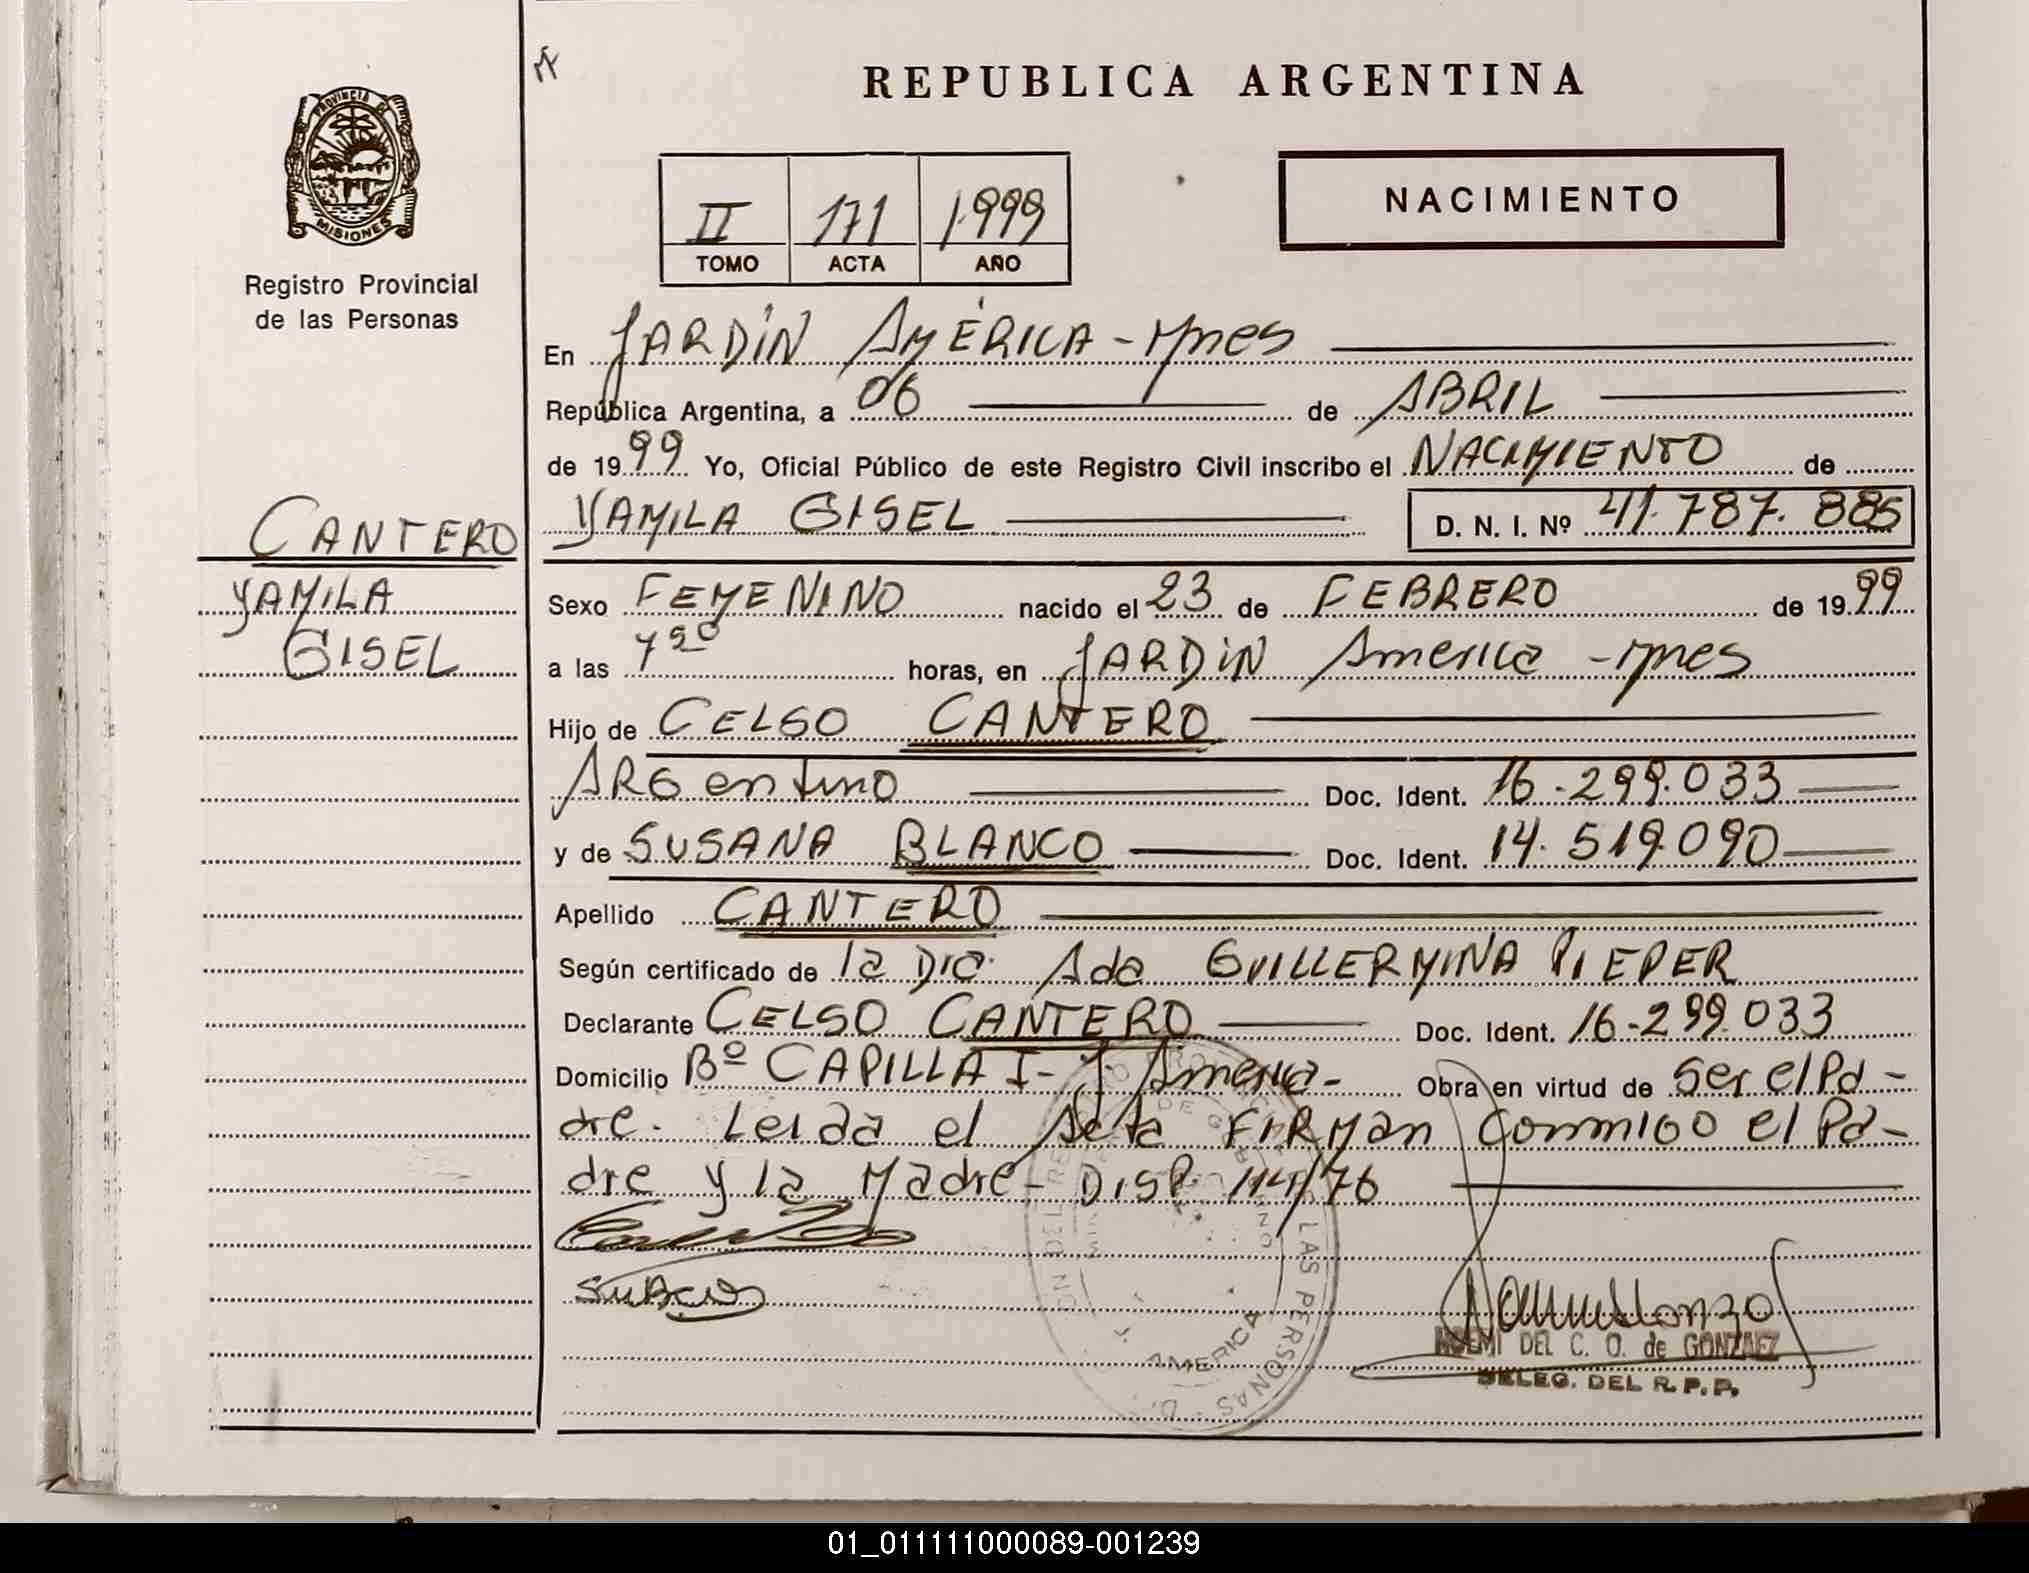 REPUBLICA ARGENTINA
PROVINCIA DE
MISIONES
Registro Provincial
de las Personas
II 171 1999
TOMO ACTA AÑO
NACIMIENTO
En JARDIN AMÉRICA - Mnes
República Argentina, a 06 de ABRIL
de 1999 Yo, Oficial Público de este Registro Civil inscribo el NACIMIENTO de
YAMILA GISEL D. N. I. Nº 41.787.885
CANTERO
YAMILA
GISEL
Sexo FEMENINO nacido el 23 de FEBRERO de 1999
a las 7 50 horas, en JARDIN America - Mnes
Hijo de CELSO CANTERO
ARGentino Doc. Ident. 16.299.033
y de SUSANA BLANCO Doc. Ident. 14.519.090
Apellido CANTERO
Según certificado de la Dra. Ada GUILLERMINA PIEPER
Declarante CELSO CANTERO Doc. Ident. 16.299.033
Domicilio Bº CAPILLA I - J. America - Obra en virtud de Ser el Pa-
dre. Leida el Acta FIRMan conmigo el Pa-
dre y la Madre - DISP. 114/76
LAS PERSONAS
AMERICA
NOEMI DEL C. O. de GONZALEZ
DELEG. DEL R. P. P.
01_011111000089-001239